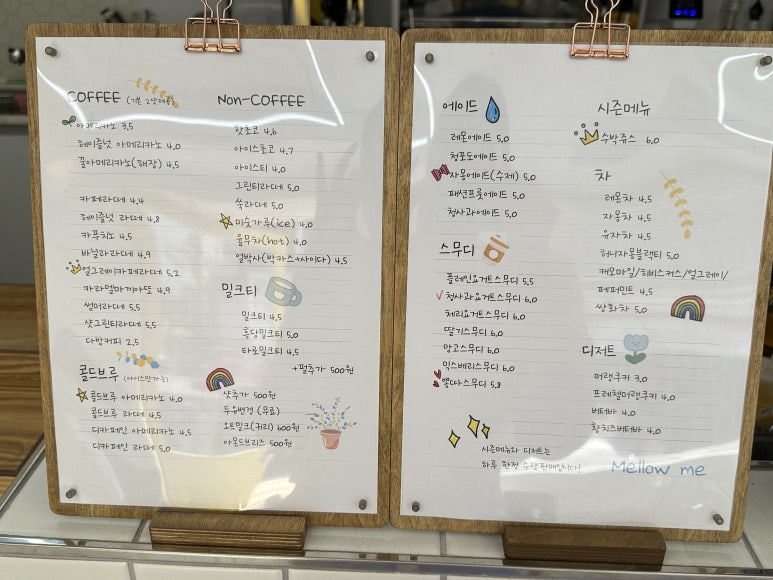 COFFEE (기본 2샷제공)
아메리카노 3.5
헤이즐넛 아메리카노 4.0
꿀아메리카노(해장) 4.5
카페라떼 4.4
헤이즐넛 라떼 4.8
카푸치노 4.5
바닐라라떼 4.9
얼그레이카페라떼 5.2
카라멜마끼아또 4.9
썸머라떼 5.5
샷그린티라떼 5.5
다방커피 2.5
콜드브루 (아이스만가능)
콜드브루 아메리카노 4.0
콜드브루 라떼 4.5
디카페인 아메리카노 4.5
디카페인 라떼 5.0
Non-COFFEE
핫초코 4.6
아이스초코 4.7
아이스티 4.0
그린티라떼 5.0
쑥라떼 5.0
미숫가루(ice) 4.0
율무차(hot) 4.0
얼박사(박카스+사이다) 4.5
밀크티
밀크티 4.5
흑당밀크티 5.0
타로밀크티 4.5
+펄추가 500원
샷추가 500원
두유변경 (무료)
오트밀크(귀리) 600원
아몬드브리즈 500원
에이드
레몬에이드 5.0
청포도에이드 5.0
자몽에이드(수제) 5.0
패션프룻에이드 5.0
청사과에이드 5.0
스무디
플레인요거트스무디 5.5
청사과요거트스무디 6.0
체리요거트스무디 6.0
딸기스무디 6.0
망고스무디 6.0
믹스베리스무디 6.0
뽕따스무디 5.8
시즌메뉴와 디저트는
하루 한정 수량판매입니다!
시즌메뉴
수박쥬스 6.0
차
레몬차 4.5
자몽차 4.5
유자차 4.5
허니자몽블랙티 5.0
캐모마일/히비스커스/얼그레이/
페퍼민트 4.5
쌍화차 5.0
디저트
머랭쿠키 3.0
프레첼머랭쿠키 4.0
버터바 4.0
황치즈버터바 4.0
Mellow me